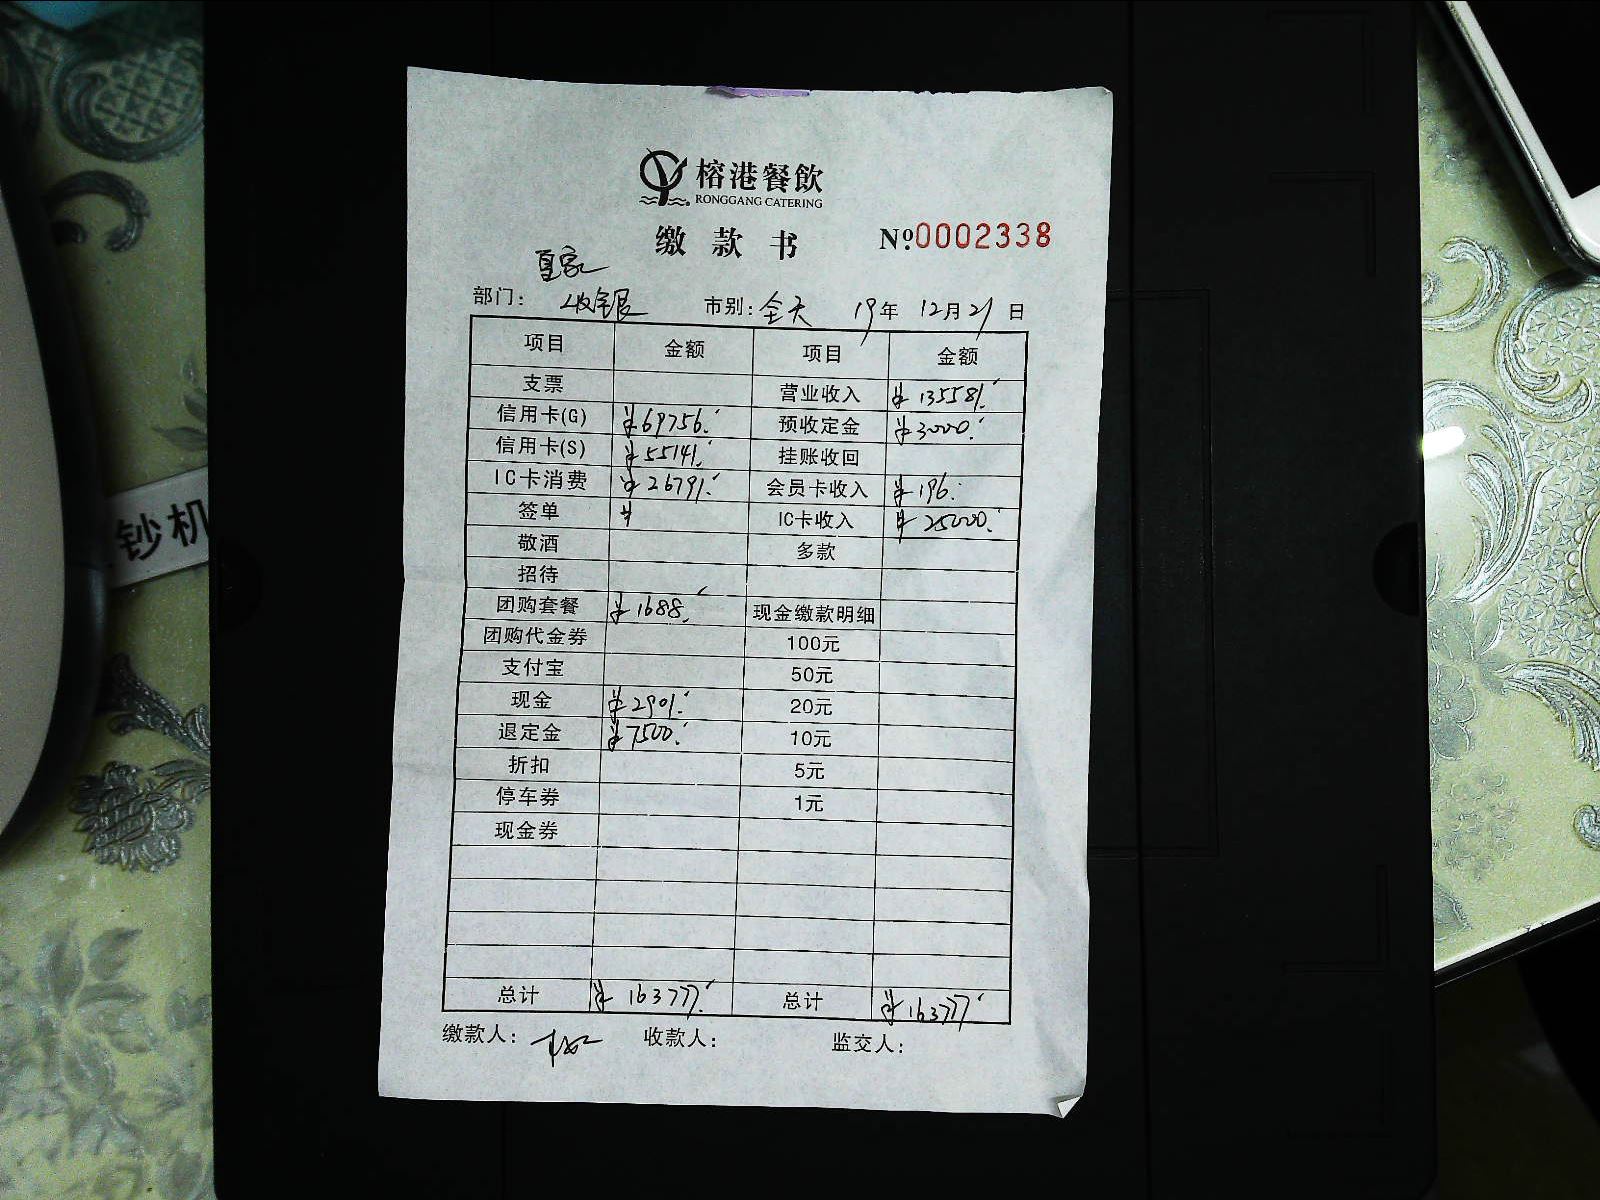 榕港餐飲
RONGGANG CATERING
缴款书 №0002338
皇家
部门: 收银 市别: 全天 19年 12月21日
项目 金额 项目 金额
支票 营业收入 ¥135581.
信用卡(G) ¥69756. 预收定金 ¥3000.
信用卡(S) ¥55141. 挂账收回
IC卡消费 ¥26791. 会员卡收入 ¥196.
签单 ¥ IC卡收入 ¥25000.
敬酒 多款
招待
团购套餐 ¥1688. 现金缴款明细
团购代金券 100元
支付宝 50元
现金 ¥2901. 20元
退定金 ¥7500. 10元
折扣 5元
停车券 1元
现金券
总计 ¥163777. 总计 ¥163777.
缴款人: 收款人: 监交人:
钞机